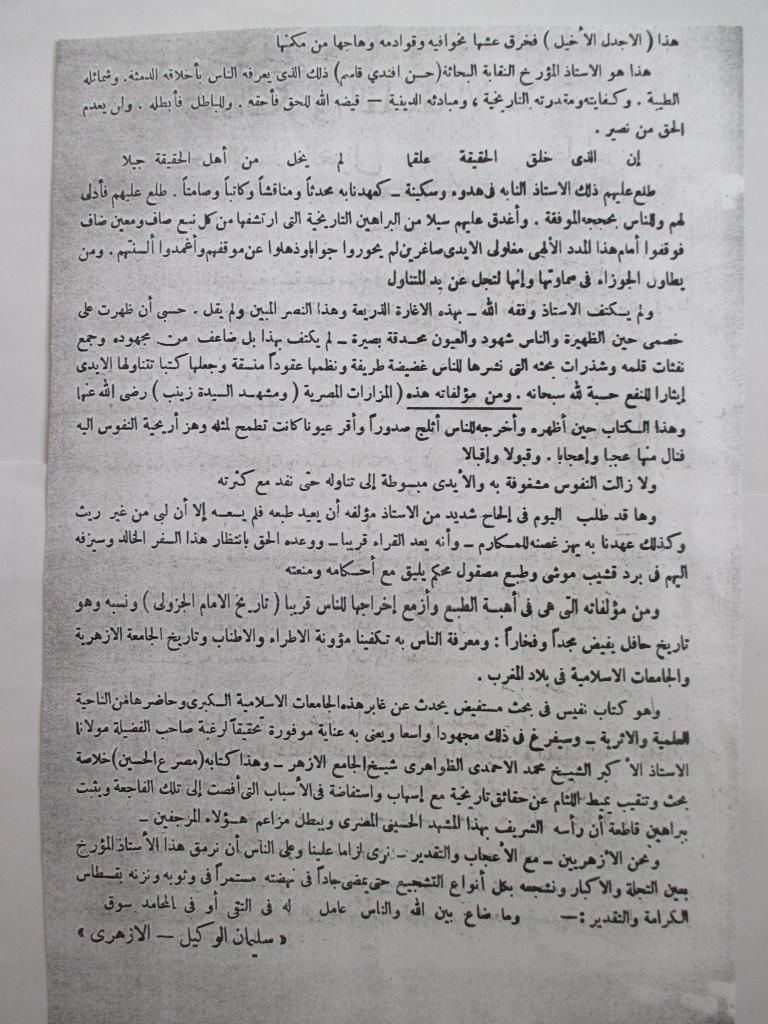 هذا ( الاجدل الأخيل ) فخرق عشها بخوافيه وقوادمه وهاجها من مكمنها
هذا هو الاستاذ المؤرخ النقابة البحاثة (حسن افندي قاسم) ذلك الذى يعرفه الناس بأخلاقه الدمثة. وشمائله
الطيبة . وكفايته ومقدرته التاريخية ، ومبادئه الدينية — قيضه الله للحق فأحقه . وللباطل فأبطله . ولن يعدم
الحق من نصير .
إن الذى خلق الحقيقة علقما لم يخل من أهل الحقيقة جيلا
طلع عليهم ذلك الاستاذ النابه فى هدوء وسكينة ــ كعهدنا به محدثاً ومناقشاً وكاتباً وصامتاً . طلع عليهم فأدلى
لهم وللناس بحججه الموفقة . وأغدق عليهم سيلا من البراهين التاريخية التى ارتشفها من كل نبع صاف ومعين ضاف
فوقفوا أمام هذا المدد الألهى مغلولى الايدى صاغرين لم يحوروا جوابا وذهلوا عن موقفهم وأغمدوا ألسنتهم . ومن
يطاول الجوزاء فى سماوتها وإنها لتجل عن يد المتناول
ولم يكتف الاستاذ وفقه الله ــ بهذه الاغارة الذريعة وهذا النصر المبين ولم يقل . حسبى أن ظهرت على
خصمى حين الظهيرة والناس شهود والعيون محدقة بصيرة ــ لم يكتف بهذا بل ضاعف من مجهوده وجمع
نفثات قلمه وشذرات بحثه التى نشرها للناس غضيضة طريفة ونظمها عقوداً منسقة وجعلها كتبا تتناولها الايدى
إيثارا للنفع حسبة لله سبحانه . ومن مؤلفاته هذه ( المزارات المصرية ( ومشهد السيدة زينب ) رضى الله عنها
وهذا الكتاب حين أظهره وأخرجه للناس أثلج صدوراً وأقر عيونا كانت تطمح لمثله وهز أريحية النفوس اليه
فنال منها عجبا وإعجابا . وقبولا وإقبالا
ولا زالت النفوس مشغوفة به والأيدى مبسوطة إلى تناوله حتى نفد مع كثرته
وها قد طلب اليوم فى إلحاح شديد من الاستاذ مؤلفه أن يعيد طبعه فلم يسعه إلا أن لبى من غير ريث
وكذلك عهدنا به يهز غصنه للمكارم ــ وأنه يعد القراء قريبا ــ ووعده الحق بانتظار هذا السفر الخالد وسيزفه
اليهم فى برد قشيب موشى وطبع مصقول محكم يليق مع أحكامه ومنعته
ومن مؤلفاته التى هى فى أهبة الطبع وأزمع إخراجها للناس قريبا ( تاريخ الامام الجزولى ) ونسبه وهو
تاريخ حافل يفيض مجداً وفخاراً : ومعرفة الناس به تكفينا مؤونة الاطراء والاطناب وتاريخ الجامعة الازهرية
والجامعات الاسلامية فى بلاد المغرب .
وهو كتاب نفيس فى بحث مستفيض يحدث عن غابر هذه الجامعات الاسلامية الكبرى وحاضرها من الناحية
العلمية والاثرية ــ وسيفرغ فى ذلك مجهودا واسعا ويعنى به عناية موفورة تحقيقاً لرغبة صاحب الفضيلة مولانا
الاستاذ الأكبر الشيخ محمد الاحمدى الظواهرى شيخ الجامع الازهر ــ وهذا كتابه (مصرع الحسين) خلاصة
بحث وتنقيب يميط اللثام عن حقائق تاريخية مع إسهاب واستفاضة فى الأسباب التى أفضت إلى تلك الفاجعة ويثبت
ببراهين قاطعة أن رأسه الشريف بهذا المشهد الحسينى المصرى ويبطل مزاعم هؤلاء المرجفين ــ
ونحن الأزهريين ــ مع الأعجاب والتقدير ــ نرى لزاما علينا وعلى الناس أن نرمق هذا الأستاذ المؤرخ
بعين التجلة والاكبار ونشجعه بكل أنواع التشجيع حتى يمضى جاداً فى نهضته مستمراً فى وثوبه ونزنه بقسطاس
الكرامة والتقدير :— وما ضاع بين الله والناس عامل له فى التقى أو فى المحامد سوق
« سليمان الوكيل — الازهرى »